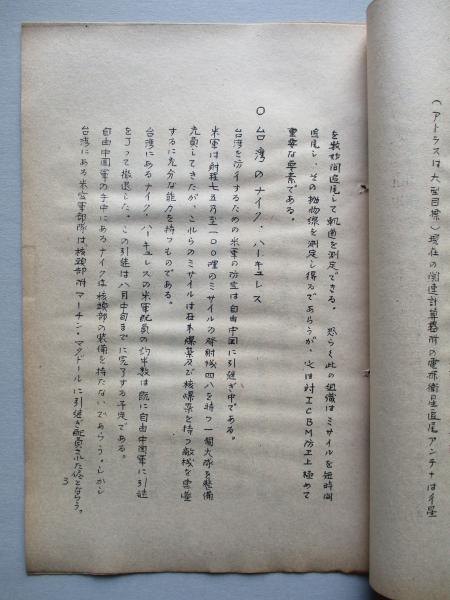 (アトラスは大型目標)現在の関連計算器附の電探衛星追尾アンテナは衛星
を数秒間追尾して軌道を測定できる。恐らく此の組織はミサイルを短時間
追尾し、その抛物線を測定し得るであらうが、之は対ICBM防エ上極めて
重要な要素である。
○台湾のナイク・ハーキュレス
台湾を防エするための米軍の防空は自由中国に引継ぎ中である。
米軍は射程七五乃至一〇〇哩のミサイルの発射域四八を持つ一個大隊を整備
充員してきたが、これらのミサイルは在来爆薬及び核爆薬を持つ敵機を要撃
するに充分な能力を持つものである。
台湾にあるナイク・ハーキュレスの米軍配員の約半数は既に自由中国軍に引継
を了って撤退した。この引継は八月中旬までに完了する予定である。
自由中国軍の手中にあるナイクは核頭部の装備を持たないであらう。しかし
台湾にある米空軍部隊は核頭部附マーチン・マタドールに引継ぎ配員されたであらう。
3